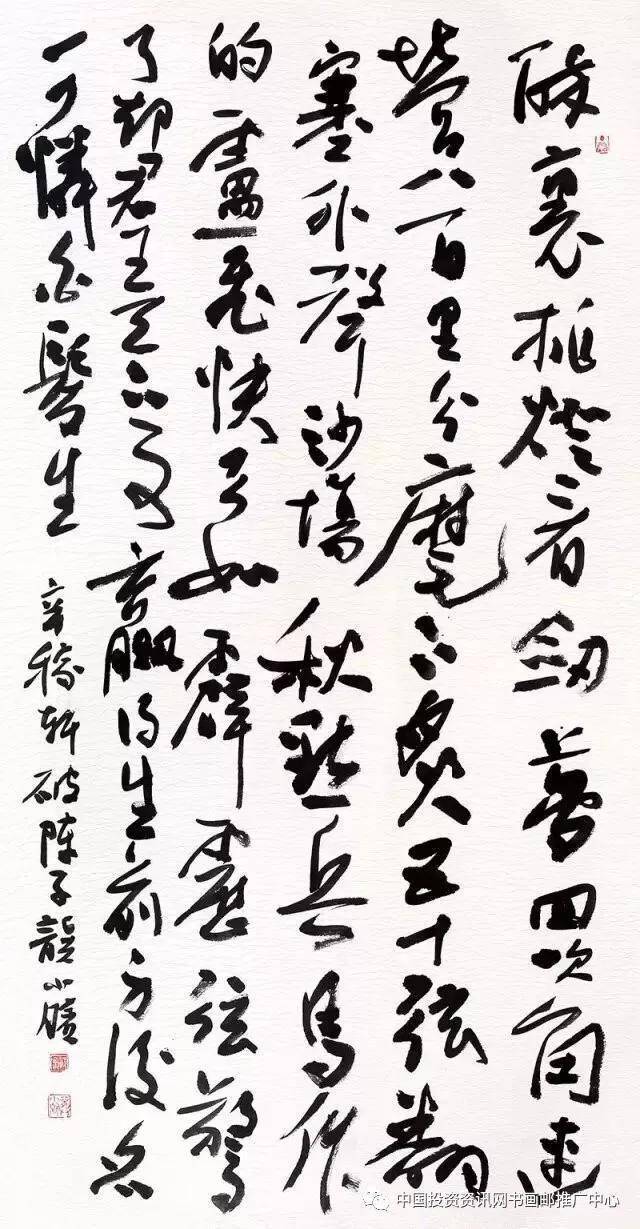 醉裏挑燈看劍夢回吹角連
營八百里分麾下炙五十弦翻
塞外聲沙場秋點兵馬作
的盧飛快弓如霹靂弦驚
了却君王天下事贏得生前身後名
可憐白髮生
辛稼軒破陣子
中国投资资讯网书画邮推广中心